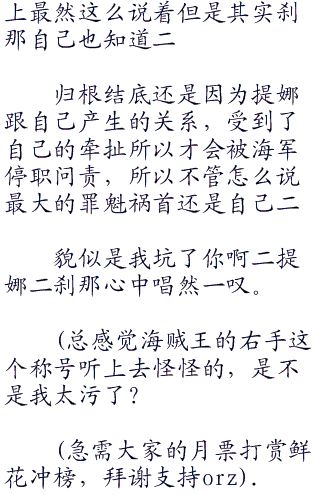 上最然这么说着但是其实刹
那自己也知道二
归根结底还是因为提娜
跟自己产生的关系，受到了
自己的牵扯所以才会被海军
停职问责，所以不管怎么说
最大的罪魁祸首还是自己二
貌似是我坑了你啊二提
娜二刹那心中唱然一叹。
(总感觉海贼王的右手这
个称号听上去怪怪的，是不
是我太污了？
(急需大家的月票打赏鲜
花冲榜，拜谢支持orz)．